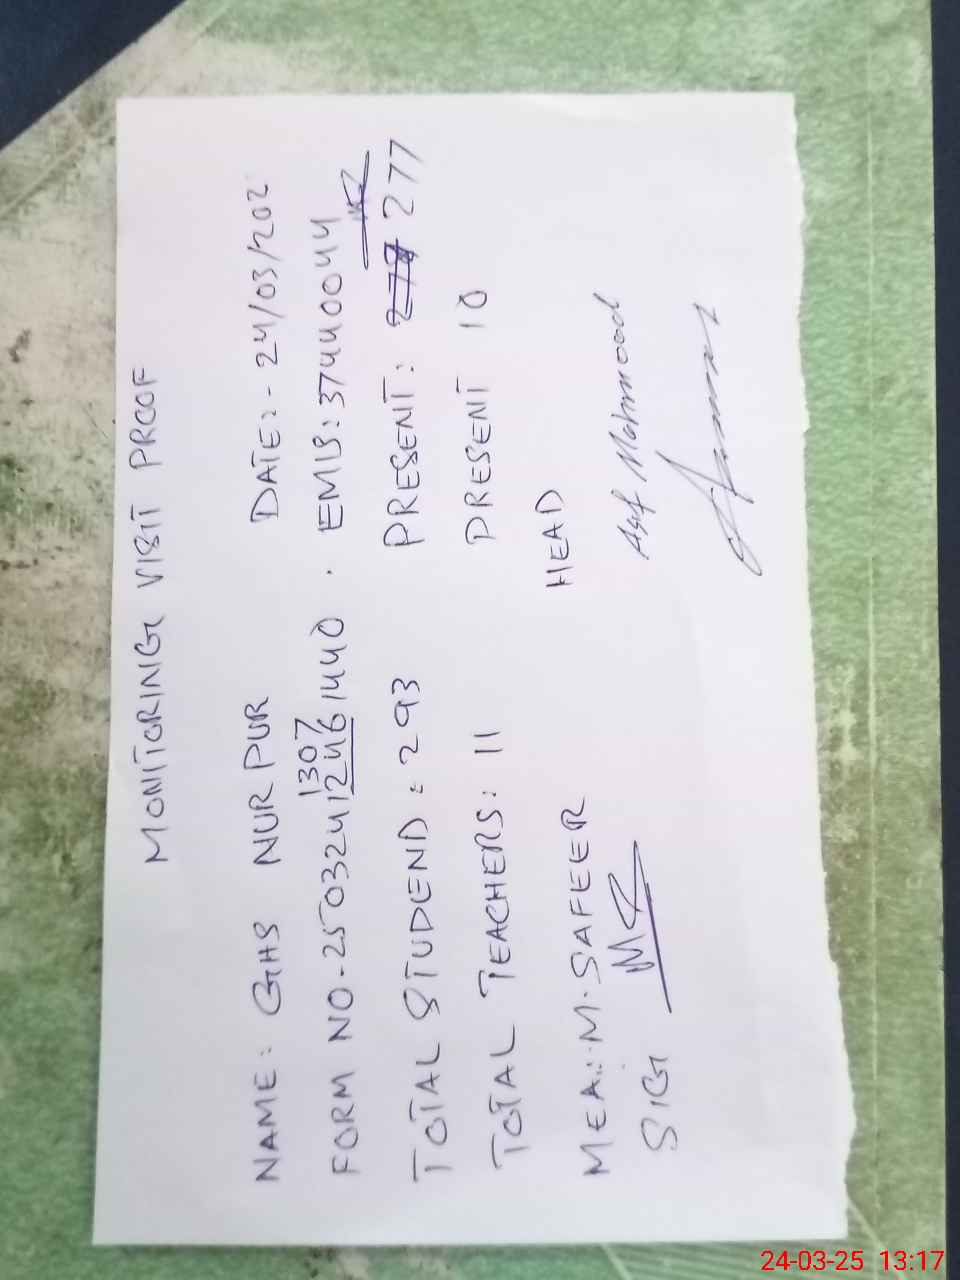 MONITORING VISIT PROOF
NAME: GHS NUR PUR DATE:- 24/03/202
1307
FORM NO-25032412461440. EMIS:37440044
TOTAL STUDEND: 293 PRESENT: 277
TOTAL TEACHERS: 11 PRESENT 10
MEA:.M.SAFEER HEAD
SIG Asif Mahmood
24-03-25 13:17